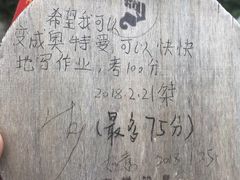 希望我可以
变成奥特曼,可以快快
地写作业,考100分
2018.2.21 桀
(最多75分)
2018